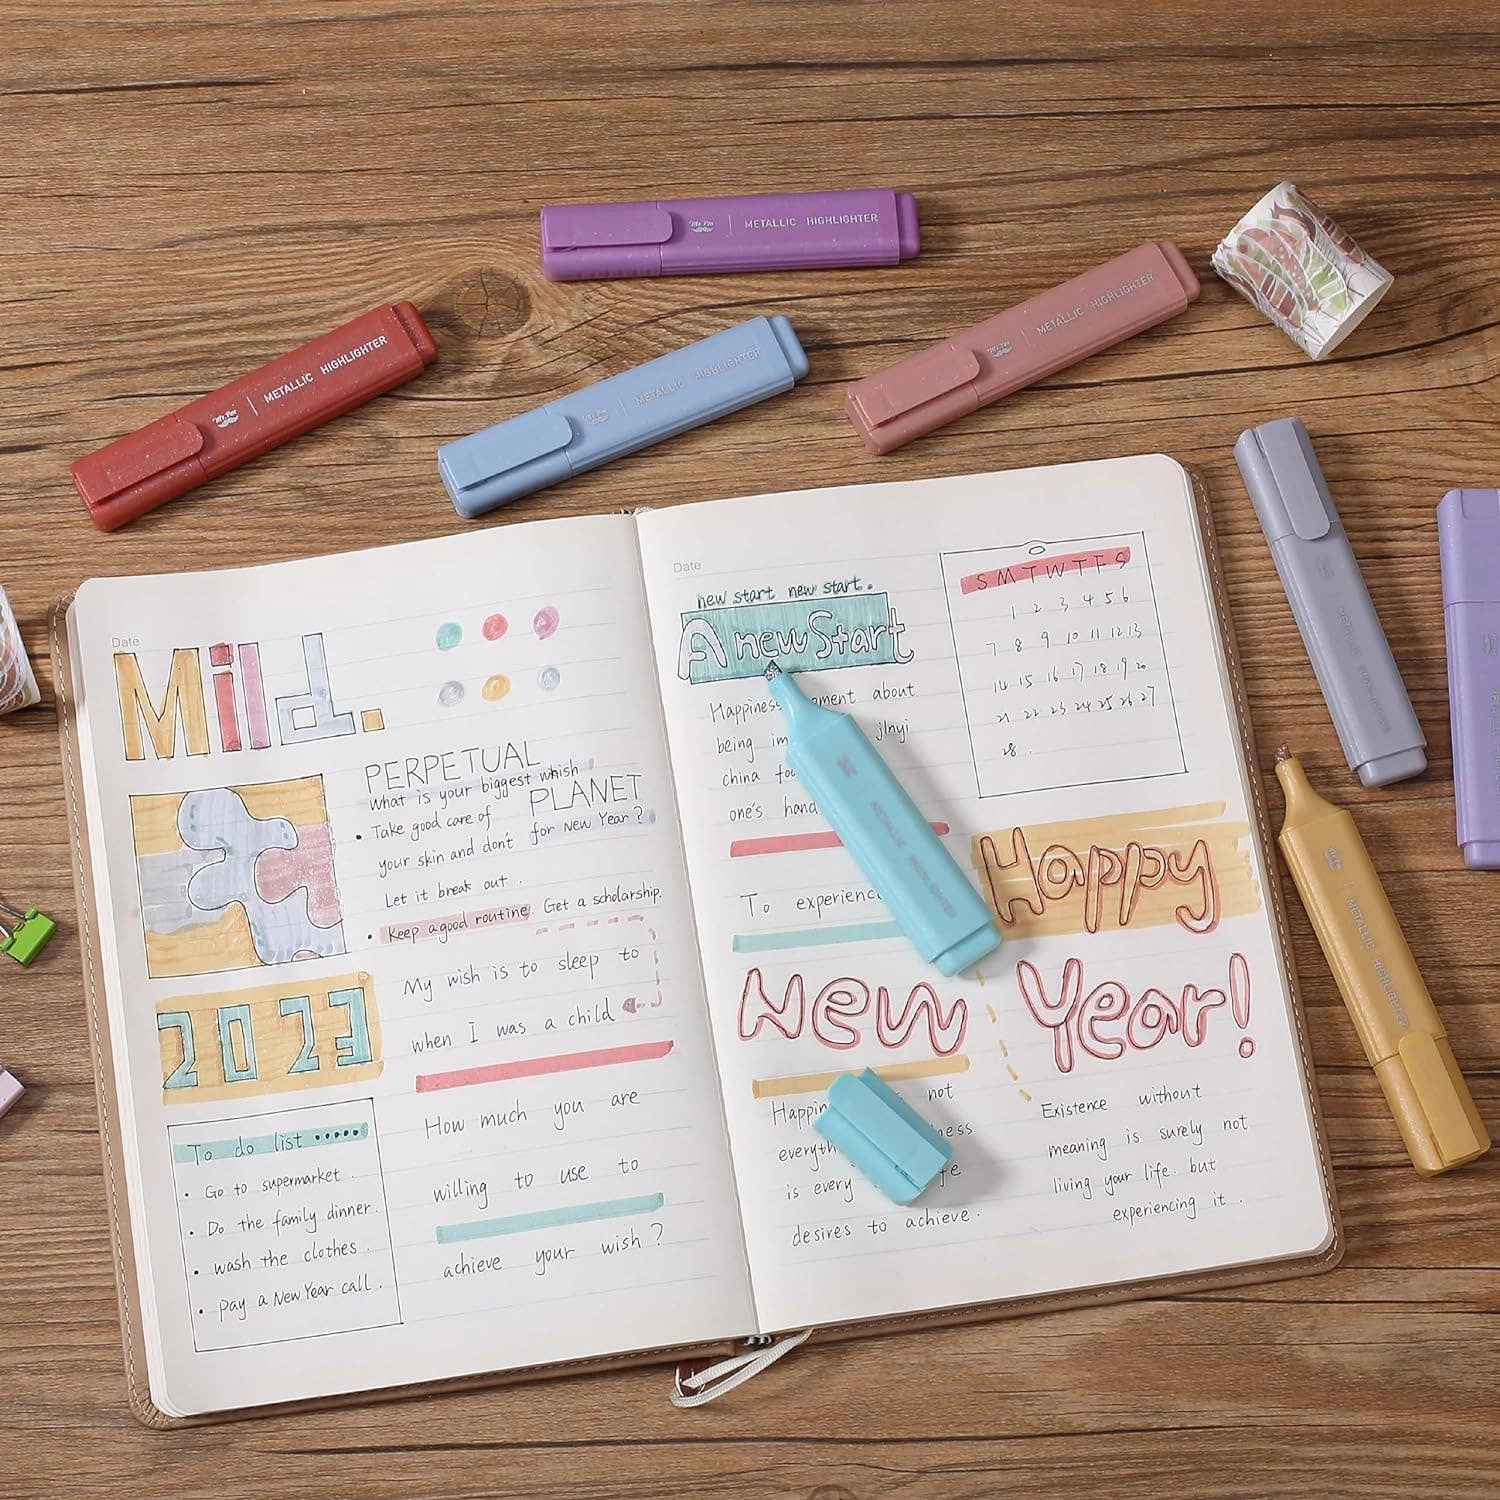 Mr. Pen METALLIC HIGHLIGHTER
Mr. Pen METALLIC HIGHLIGHTER
METALLIC HIGHLIGHTER
METALLIC HIGHLIGHTER
Date
Mild.
PERPETUAL
what is your biggest whish
PLANET
for New Year ?
• Take good care of
your skin and don't
Let it break out .
• Keep a good routine. Get a scholarship.
My wish is to sleep to
when I was a child
How much you are
willing to use to
achieve your wish ?
2023
To do list •••••
• Go to supermarket .
• Do the family dinner.
• wash the clothes .
• pay a New Year call .
Date
new start new start .
A new Start
about
being
china
one's
To
S M T W T F S
1 2 3 4 5 6
7 8 9 10 11 12 13
14 15 16 17 18 19 20
21 22 23 24 25 26 27
28 .
Happy
New Year!
not
is every
desires to achieve .
Existence without
meaning is surely not
living your life. but
experiencing it .
METALLIC HIGHLIGHTER
METALLIC HIGHLIGHTER